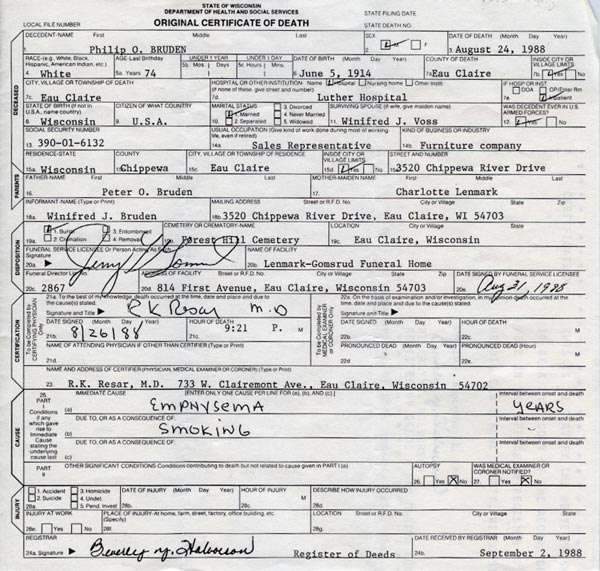 STATE OF WISCONSIN
DEPARTMENT OF HEALTH AND SOCIAL SERVICES
LOCAL FILE NUMBER ORIGINAL CERTIFICATE OF DEATH STATE FILING DATE
STATE DEATH NO.
DECEDENT-NAME First Middle Last SEX DATE OF DEATH (Month Day Year)
1. Philip O. BRUDEN 2. M F 3. August 24, 1988
RACE-(e.g., White, Black, Hispanic, American Indian, etc.) AGE-Last Birthday UNDER 1 YEAR UNDER 1 DAY DATE OF BIRTH (Month Day Year) COUNTY OF DEATH INSIDE CITY OR VILLAGE LIMITS
4. White 5a. Years 74 5b. Mos. Days 5c. Hours Mins. 6. June 5, 1914 7a. Eau Claire 7b. Yes No
CITY, VILLAGE OR TOWNSHIP OF DEATH HOSPITAL OR OTHER INSTITUTION- Name Hospital Nursing home Other Instit. IF HOSP OR INST
(if none of these, give street and number) DOA OP/Emer Rm.
7c. Eau Claire 7d. Luther Hospital 7e. Inpatient
STATE OF BIRTH (If not in U.S.A., name country) CITIZEN OF WHAT COUNTRY MARITAL STATUS 1. Married 2. Separated 3. Divorced 4. Never Married 5. Widowed SURVIVING SPOUSE (If wife, give maiden name) WAS DECEDENT EVER IN U.S. ARMED FORCES?
8. Wisconsin 9. U.S.A. 10. 11. Winifred J. Voss 12. Yes No
SOCIAL SECURITY NUMBER USUAL OCCUPATION (Give kind of work done during most of working life, even if retired) KIND OF BUSINESS OR INDUSTRY
13. 390-01-6132 14a. Sales Representative 14b. Furniture company
RESIDENCE-STATE COUNTY CITY, VILLAGE OR TOWNSHIP OF RESIDENCE INSIDE CITY OR VILLAGE LIMITS STREET AND NUMBER
15a. Wisconsin 15b. Chippewa 15c. Eau Claire 15d. Yes No 15e. 3520 Chippewa River Drive
FATHER-NAME First Middle Last MOTHER-MAIDEN NAME First Middle Last
16. Peter O. Bruden 17. Charlotte Lenmark
INFORMANT-NAME (Type or Print) MAILING ADDRESS Street or R.F.D. No. City or Village State Zip
18a. Winifred J. Bruden 18b. 3520 Chippewa River Drive, Eau Claire, WI 54703
1. Burial 2. Cremation 3. Entombment 4. Removal CEMETERY OR CREMATORY-NAME LOCATION City or Village State
19a. 19b. Forest Hill Cemetery 19c. Eau Claire, Wisconsin
FUNERAL SERVICE LICENSEE Or Person Acting As Such NAME OF FACILITY
20a. Signature 20b. Lenmark-Gomsrud Funeral Home
Funeral Director ADDRESS OF FACILITY Street or R.F.D. No. City or Village State Zip DATE SIGNED BY FUNERAL SERVICE LICENSEE
20c. 2867 20d. 814 First Avenue, Eau Claire, Wisconsin 54703 20e.
21a. To the best of my knowledge, death occurred at the time, date and place and due to the cause(s) stated. 22a. On the basis of examination and/or investigation, in my opinion death occurred at the time, date and place and due to the cause(s) stated.
Signature and Title RK Resar M.D Signature and Title
DATE SIGNED (Month Day Year) HOUR OF DEATH DATE SIGNED (Month Day Year) HOUR OF DEATH
21b. 8/26/88 21c. 9:21 P. M 22b. 22c. M
NAME OF ATTENDING PHYSICIAN IF OTHER THAN CERTIFIER (Type or Print) PRONOUNCED DEAD (Month Day Year) PRONOUNCED DEAD (Hour)
21d. 22d. 22e. M
NAME AND ADDRESS OF CERTIFIER (PHYSICIAN, MEDICAL EXAMINER OR CORONER) (Type or Print)
23. R.K. Resar, M.D. 733 W. Clairemont Ave., Eau Claire, Wisconsin 54702
25. IMMEDIATE CAUSE [ENTER ONLY ONE CAUSE PER LINE FOR (a), (b), AND (c).] Interval between onset and death
PART I (a) EMPHYSEMA YEARS
Conditions if any which gave rise to Immediate Cause stating the underlying cause last
DUE TO, OR AS A CONSEQUENCE OF: Interval between onset and death
(b) SMOKING
DUE TO, OR AS A CONSEQUENCE OF: Interval between onset and death
(c)
PART II OTHER SIGNIFICANT CONDITIONS-Conditions contributing to death but not related to cause given in PART I (a) AUTOPSY WAS MEDICAL EXAMINER OR CORONER NOTIFIED?
26. Yes No 27. Yes No
1. Accident 2. Suicide 3. Homicide 4. Undet. 5. Pend. Invest DATE OF INJURY (Month Day Year) HOUR OF INJURY DESCRIBE HOW INJURY OCCURRED
28a. 28b. 28c. M 28d.
INJURY AT WORK PLACE OF INJURY-At home, farm, street, factory, office building, etc. (Specify) LOCATION Street or R.F.D. No. City or Village State
28e. Yes No 28f. 28g.
REGISTRAR DATE RECEIVED BY REGISTRAR (Month Day Year)
24a. Signature Beverly Register of Deeds 24b. September 2, 1988
DECEASED
PARENTS
DISPOSITION
CERTIFICATION
To be Completed by CERTIFYING PHYSICIAN Only
To be Completed by MEDICAL EXAMINER or CORONER Only
CAUSE
INJURY